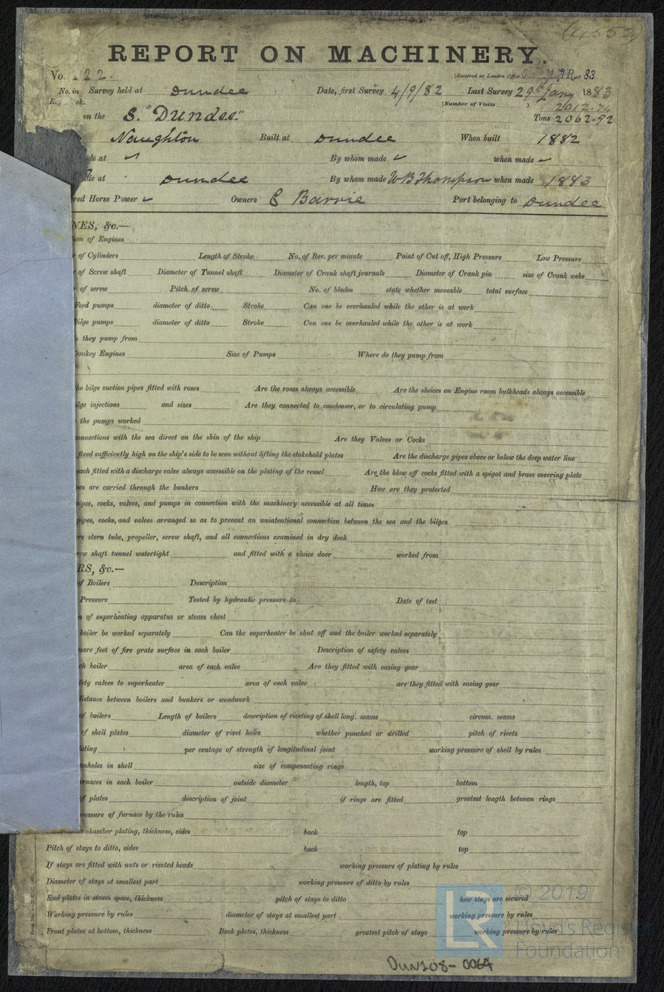 REPORT ON MACHINERY.
No. 22.
(Received at London Office 83
No. in Survey held at Dundee Date, first Survey 4/9/82 Last Survey 29th Jany 1883
(Number of Visits )
on the S. "Dundee" Tons 2062.92
Naughton Built at Dundee When built 1882
at By whom made when made
at Dundee By whom made W B Thompson when made 1883
red Horse Power Owners C Barrie Port belonging to Dundee
NES, &c.—
ion of Engines
of Cylinders Length of Stroke No. of Rev. per minute Point of Cut off, High Pressure Low Pressure
of Screw shaft Diameter of Tunnel shaft Diameter of Crank shaft journals Diameter of Crank pin size of Crank webs
of screw Pitch of screw No. of blades state whether moveable total surface
Feed pumps diameter of ditto Stroke Can one be overhauled while the other is at work
Bilge pumps diameter of ditto Stroke Can one be overhauled while the other is at work
they pump from
Donkey Engines Size of Pumps Where do they pump from
the bilge suction pipes fitted with roses Are the roses always accessible Are the sluices on Engine room bulkheads always accessible
bilge injections and sizes Are they connected to condenser, or to circulating pump
the pumps worked
connections with the sea direct on the skin of the ship Are they Valves or Cocks
fixed sufficiently high on the ship's side to be seen without lifting the stokehold plates Are the discharge pipes above or below the deep water line
each fitted with a discharge valve always accessible on the plating of the vessel Are the blow off cocks fitted with a spigot and brass covering plate
es are carried through the bunkers How are they protected
pipes, cocks, valves, and pumps in connection with the machinery accessible at all times
pipes, cocks, and valves arranged so as to prevent an unintentional connection between the sea and the bilges
re stern tube, propeller, screw shaft, and all connections examined in dry dock
ew shaft tunnel watertight and fitted with a sluice door worked from
RS, &c.—
of Boilers Description
Pressure Tested by hydraulic pressure to Date of test
n of superheating apparatus or steam chest
boiler be worked separately Can the superheater be shut off and the boiler worked separately
uare feet of fire grate surface in each boiler Description of safety valves
ch boiler area of each valve Are they fitted with easing gear
fety valves to superheater area of each valve are they fitted with easing gear
distance between boilers and bunkers or woodwork
of boilers Length of boilers description of riveting of shell long. seams circum. seams
of shell plates diameter of rivet holes whether punched or drilled pitch of rivets
lating per centage of strength of longitudinal joint working pressure of shell by rules
anholes in shell size of compensating rings
urnaces in each boiler outside diameter length, top bottom
of plates description of joint if rings are fitted greatest length between rings
pressure of furnace by the rules
chamber plating, thickness, sides back top
Pitch of stays to ditto, sides back top
If stays are fitted with nuts or riveted heads working pressure of plating by rules
Diameter of stays at smallest part working pressure of ditto by rules
End plates in steam space, thickness pitch of stays to ditto how stays are secured
Working pressure by rules diameter of stays at smallest part working pressure by rules
Front plates at bottom, thickness Back plates, thickness greatest pitch of stays working pressure by rules
LR
© 2019
Lloyd's Register
Foundation
DUN208-0064